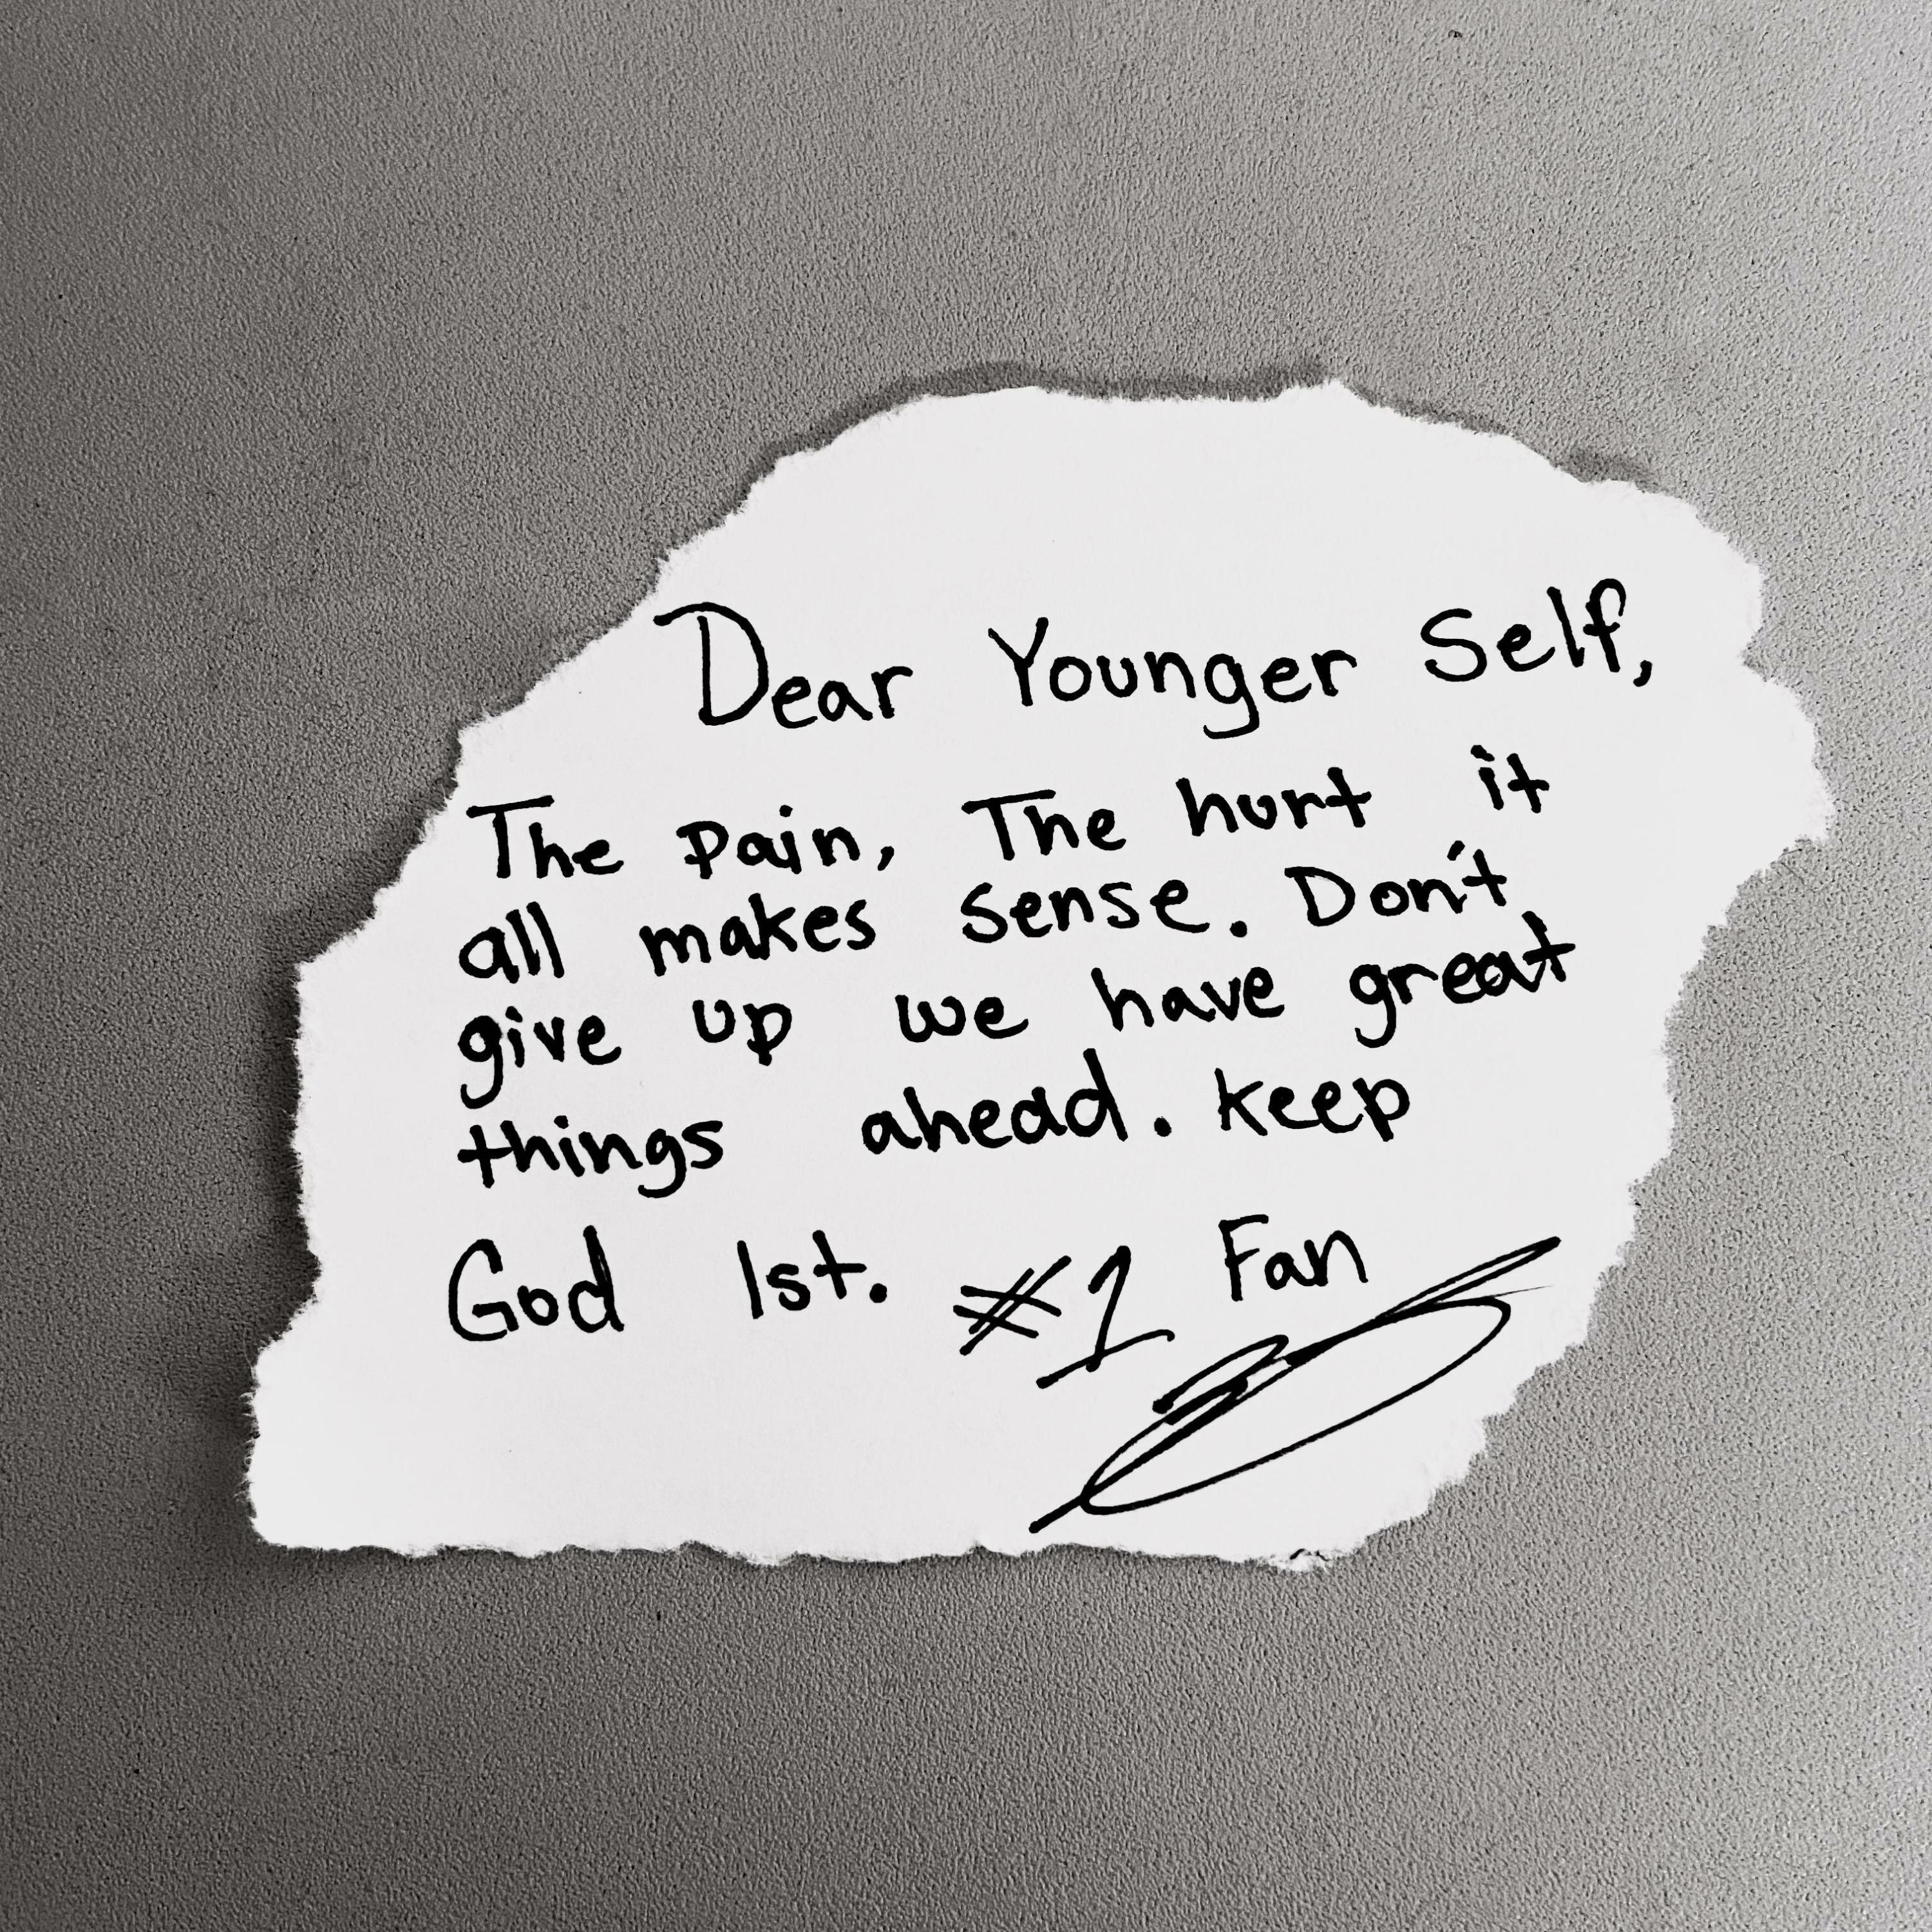 Dear Younger Self,
The pain, The hurt it
all makes sense. Don't
give up we have great
things ahead. keep
God 1st. #1 Fan